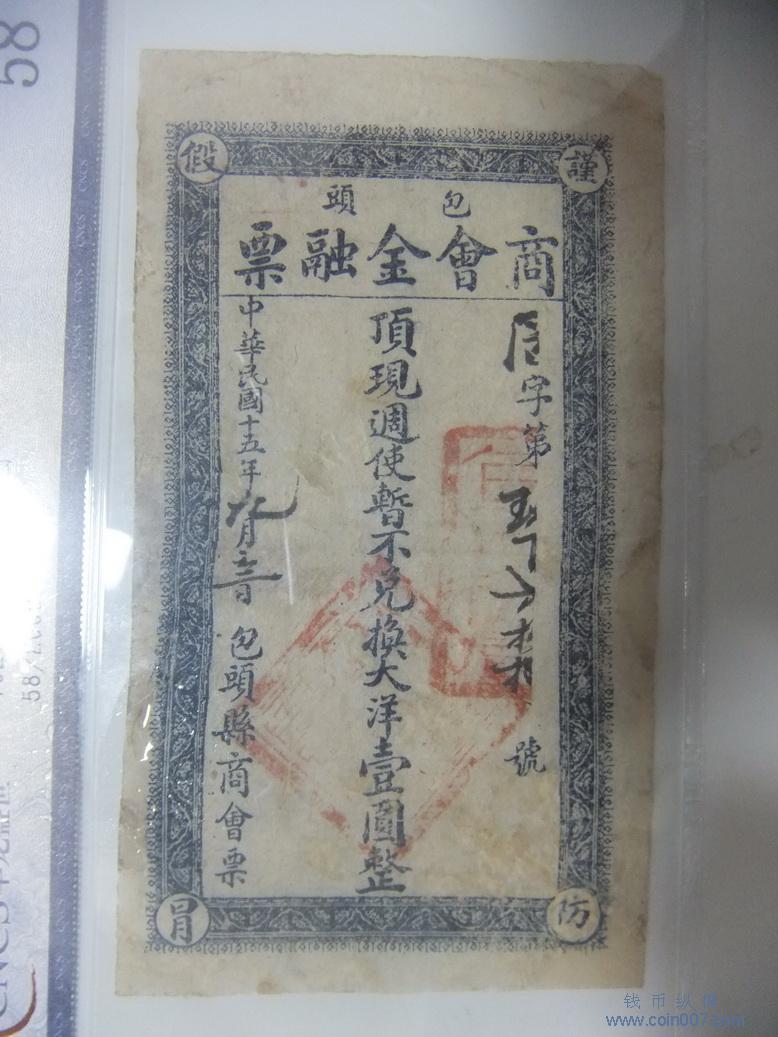 謹防假冒
包頭
商會金融票
字第
號
頂現週使暫不兌換大洋壹圓整
中華民國十五年九月
包頭縣商會票
58
CNCS
钱币纵横
www.coin007.com